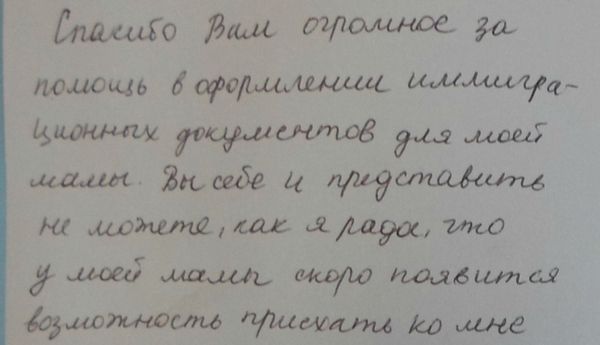 Спасибо Вам огромное за
помощь в оформлении иммигра-
ционных документов для моей
мамы. Вы себе и представить
не можете, как я рада, что
у моей мамы скоро появится
возможность приехать ко мне